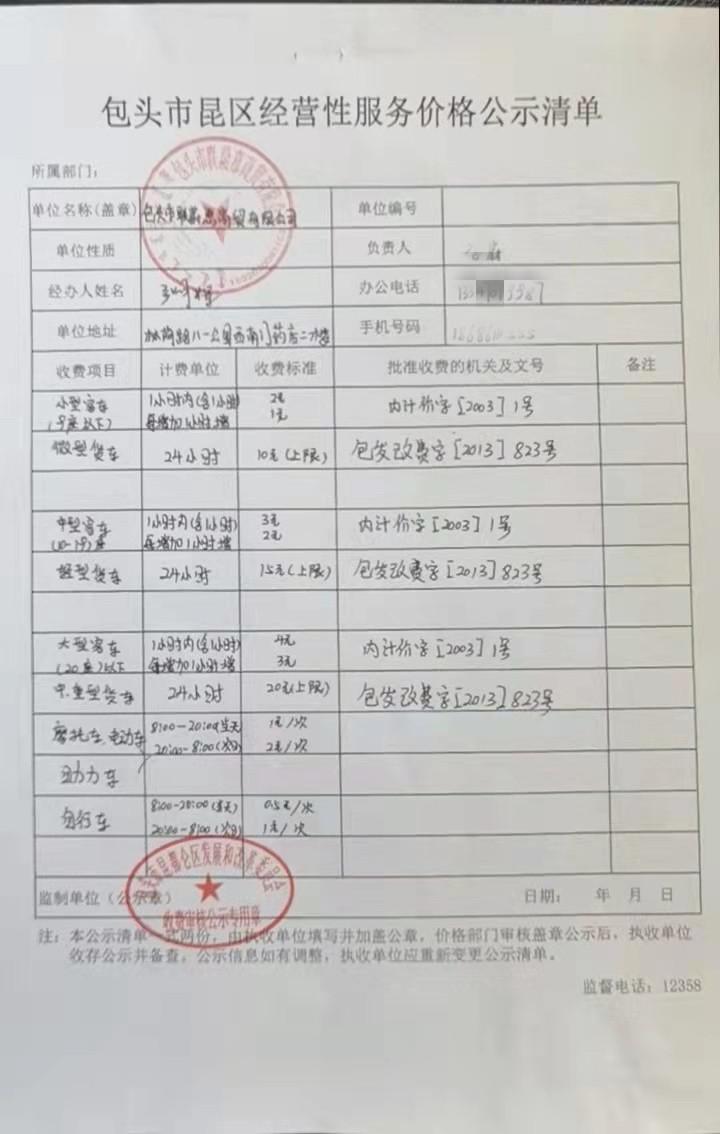 包头市昆区经营性服务价格公示清单
所属部门：
单位名称(盖章) 包头市 商贸有限公司 单位编号
单位性质 负责人
经办人姓名 办公电话
单位地址 八一公园西南门药店二楼 手机号码
收费项目 计费单位 收费标准 批准收费的机关及文号 备注
小型客车 1小时内(含1小时) 2元 内计价字[2003]1号
(9座以下) 每增加1小时增 1元
微型货车 24小时 10元(上限) 包发改费字[2013]823号
中型客车 1小时内(含1小时) 3元 内计价字[2003]1号
(10-19)座 每增加1小时增 2元
轻型货车 24小时 15元(上限) 包发改费字[2013]823号
大型客车 1小时内(含1小时) 4元 内计价字[2003]1号
(20座)以下 每增加1小时增 3元
中.重型货车 24小时 20元(上限) 包发改费字[2013]823号
摩托车、电动车 8:00-20:00(当天) 1元/次
20:00-8:00(次日) 2元/次
助力车
自行车 8:00-20:00(当天) 0.5元/次
20:00-8:00(次日) 1元/次
昆都仑区发展和改革委员会
收费审核公示专用章
监制单位(公示章) 日期： 年 月 日
注：本公示清单一式两份，由执收单位填写并加盖公章，价格部门审核盖章公示后，执收单位
收存公示并备查，公示信息如有调整，执收单位应重新变更公示清单。
监督电话：12358